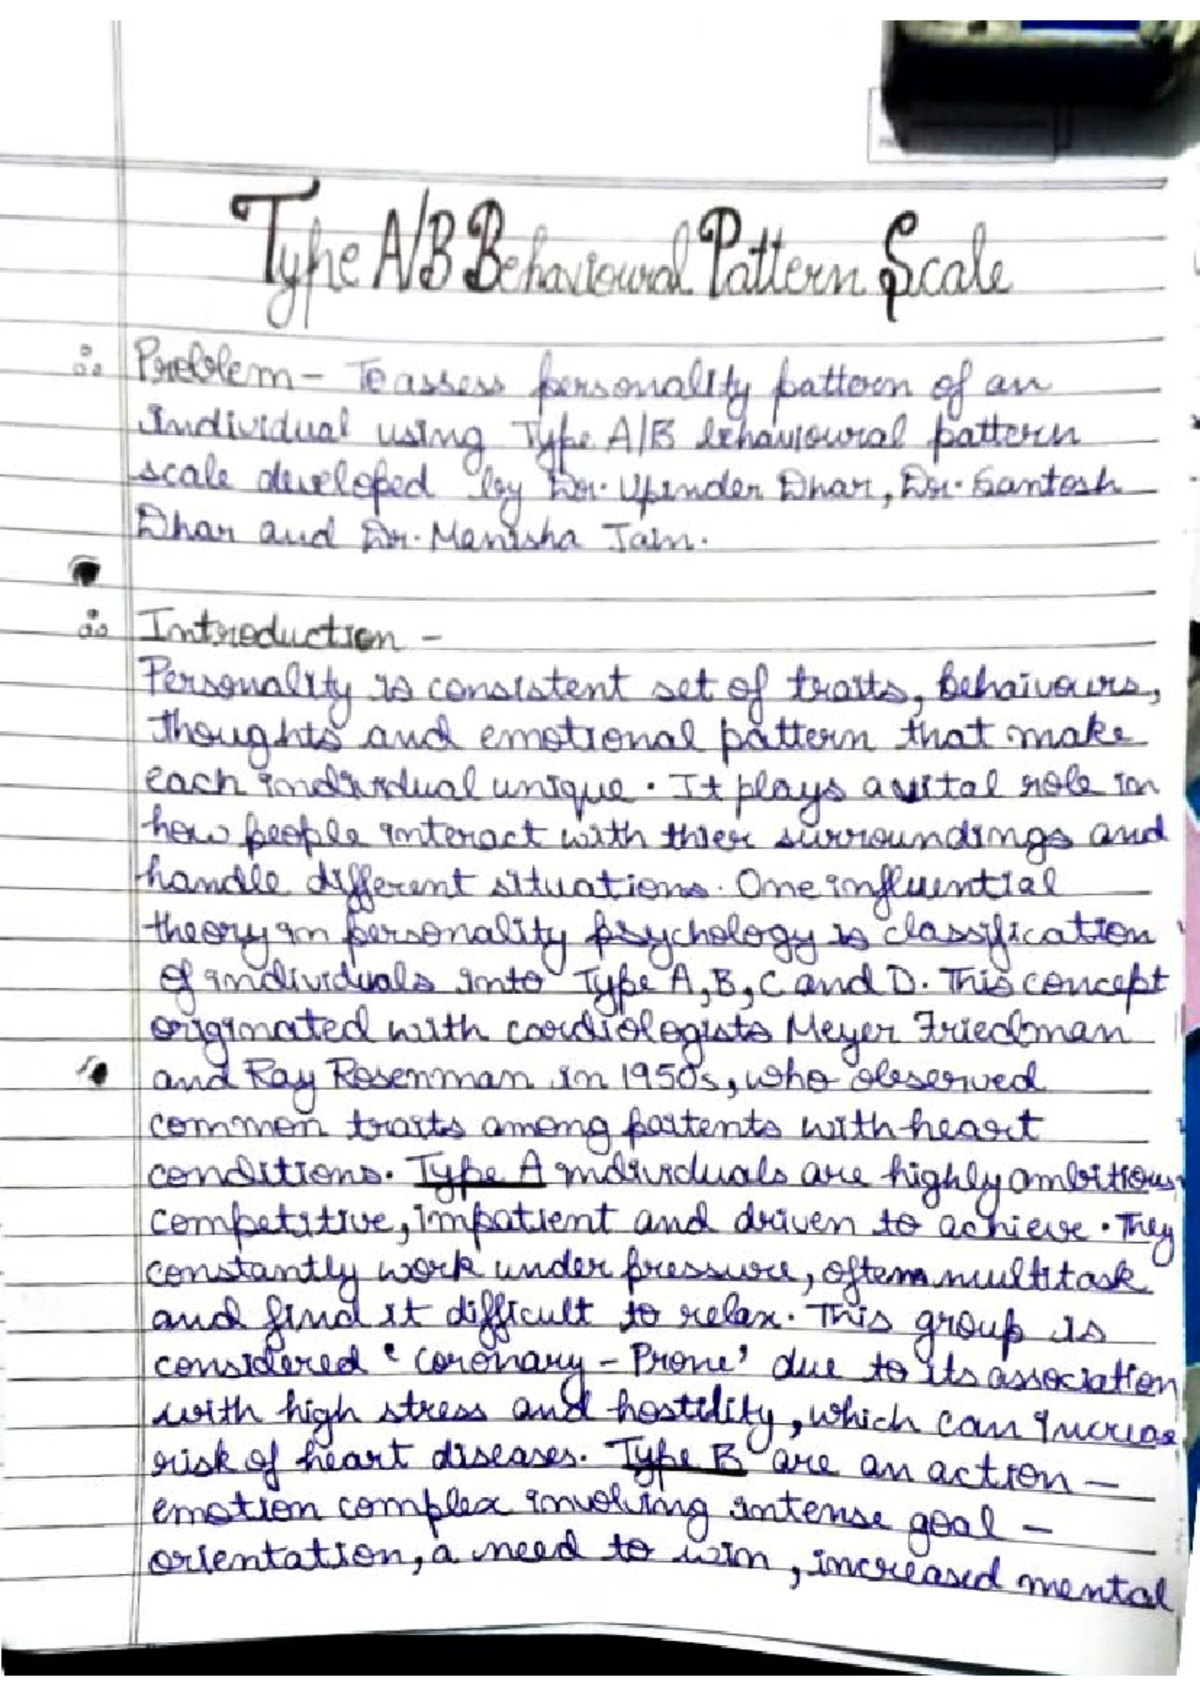 Type A/B Behavioural Pattern Scale
Problem - To assess personality pattern of an
Individual using Type A/B behavioural pattern
scale developed by Dr. Upinder Dhar, Dr. Santosh
Dhar and Dr. Manisha Jain.
Introduction -
Personality is consistent set of traits, behaivours,
thoughts and emotional pattern that make
each individual unique. It plays a vital role in
how people interact with thier surroundings and
handle different situations. One influential
theory in personality psychology is classification
of individuals into Type A, B, C and D. This concept
originated with cardiologists Meyer Friedman
and Ray Rosenman in 1950s, who observed
common traits among patients with heart
conditions. Type A individuals are highly ambitious,
competitive, impatient and driven to achieve. They
constantly work under pressure, often multitask
and find it difficult to relax. This group is
considered 'coronary - Prone' due to its association
with high stress and hostility, which can increas
risk of heart diseases. Type B are an action -
emotion complex involving intense goal -
orientation, a need to win, increased mental